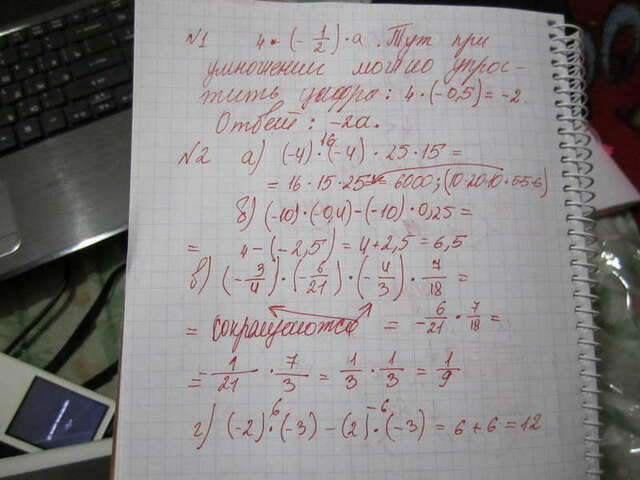 N1 4·(-1/2)·a. Тут при
умножении можно упрос-
тить цифра: 4·(-0,5)=-2.
Ответ: -2a.
N2 а) (-4)·(-4)·25·15=
16
=16·15·25=6000;
б) (-10)·(-0,4)-(-10)·0,25=
= 4-(-2,5)=4+2,5=6,5
в) (-3/4)·(-6/21)·(-4/3)·7/18=
= сокращаются = -6/21·7/18=
=-1/21·7/3=1/3·1/3=1/9
г) (-2)·(-3)-(2)·(-3)=6+6=12
6 -6